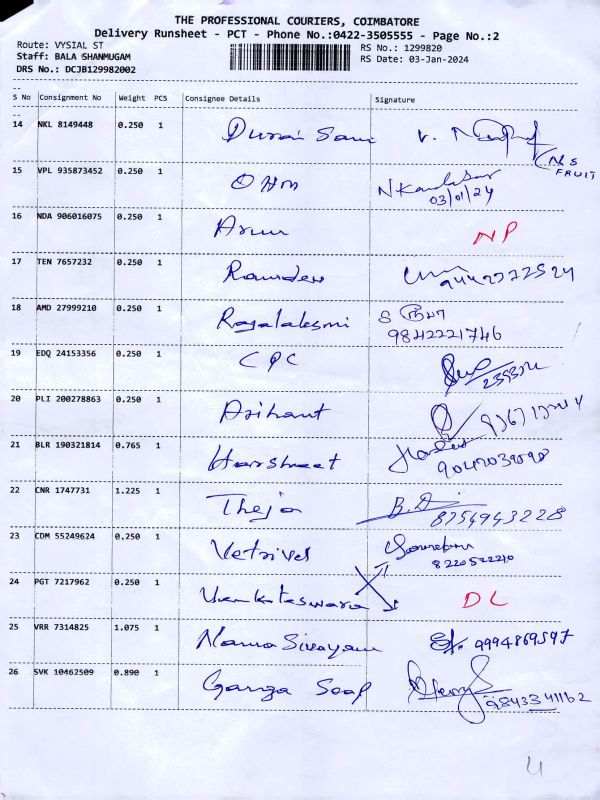 THE PROFESSIONAL COURIERS, COIMBATORE
Delivery Runsheet - PCT - Phone No.:0422-3505555 - Page No.:2
Route: VYSIAL ST
Staff: BALA SHANMUGAM
DRS No.: DCJB129982002
RS No.: 1299820
RS Date: 03-Jan-2024
S No Consignment No Weight PCS Consignee Details Signature
14 NKL 8149448 0.250 1 Durai Sami V.
N S FRUIT
15 VPL 935873452 0.250 1 OHM
03/01/24
16 NDA 906016075 0.250 1 Arun NP
17 TEN 7657232 0.250 1 Ramdev 9442722524
18 AMD 27999210 0.250 1 Rajalaksmi
9842221746
19 EDQ 24153356 0.250 1 CPC
20 PLI 200278863 0.250 1 Arihant
21 BLR 190321814 0.765 1 Harshneet
22 CNR 1747731 1.225 1 Theja B.D
8754943228
23 CDM 55249624 0.250 1 Vetrivel
8220522210
24 PGT 7217962 0.250 1 Venkateswara DL
25 VRR 7314825 1.075 1 Nama Sivayam 9994869597
26 SVK 10462509 0.890 1 Ganga Soap
9843341162
4